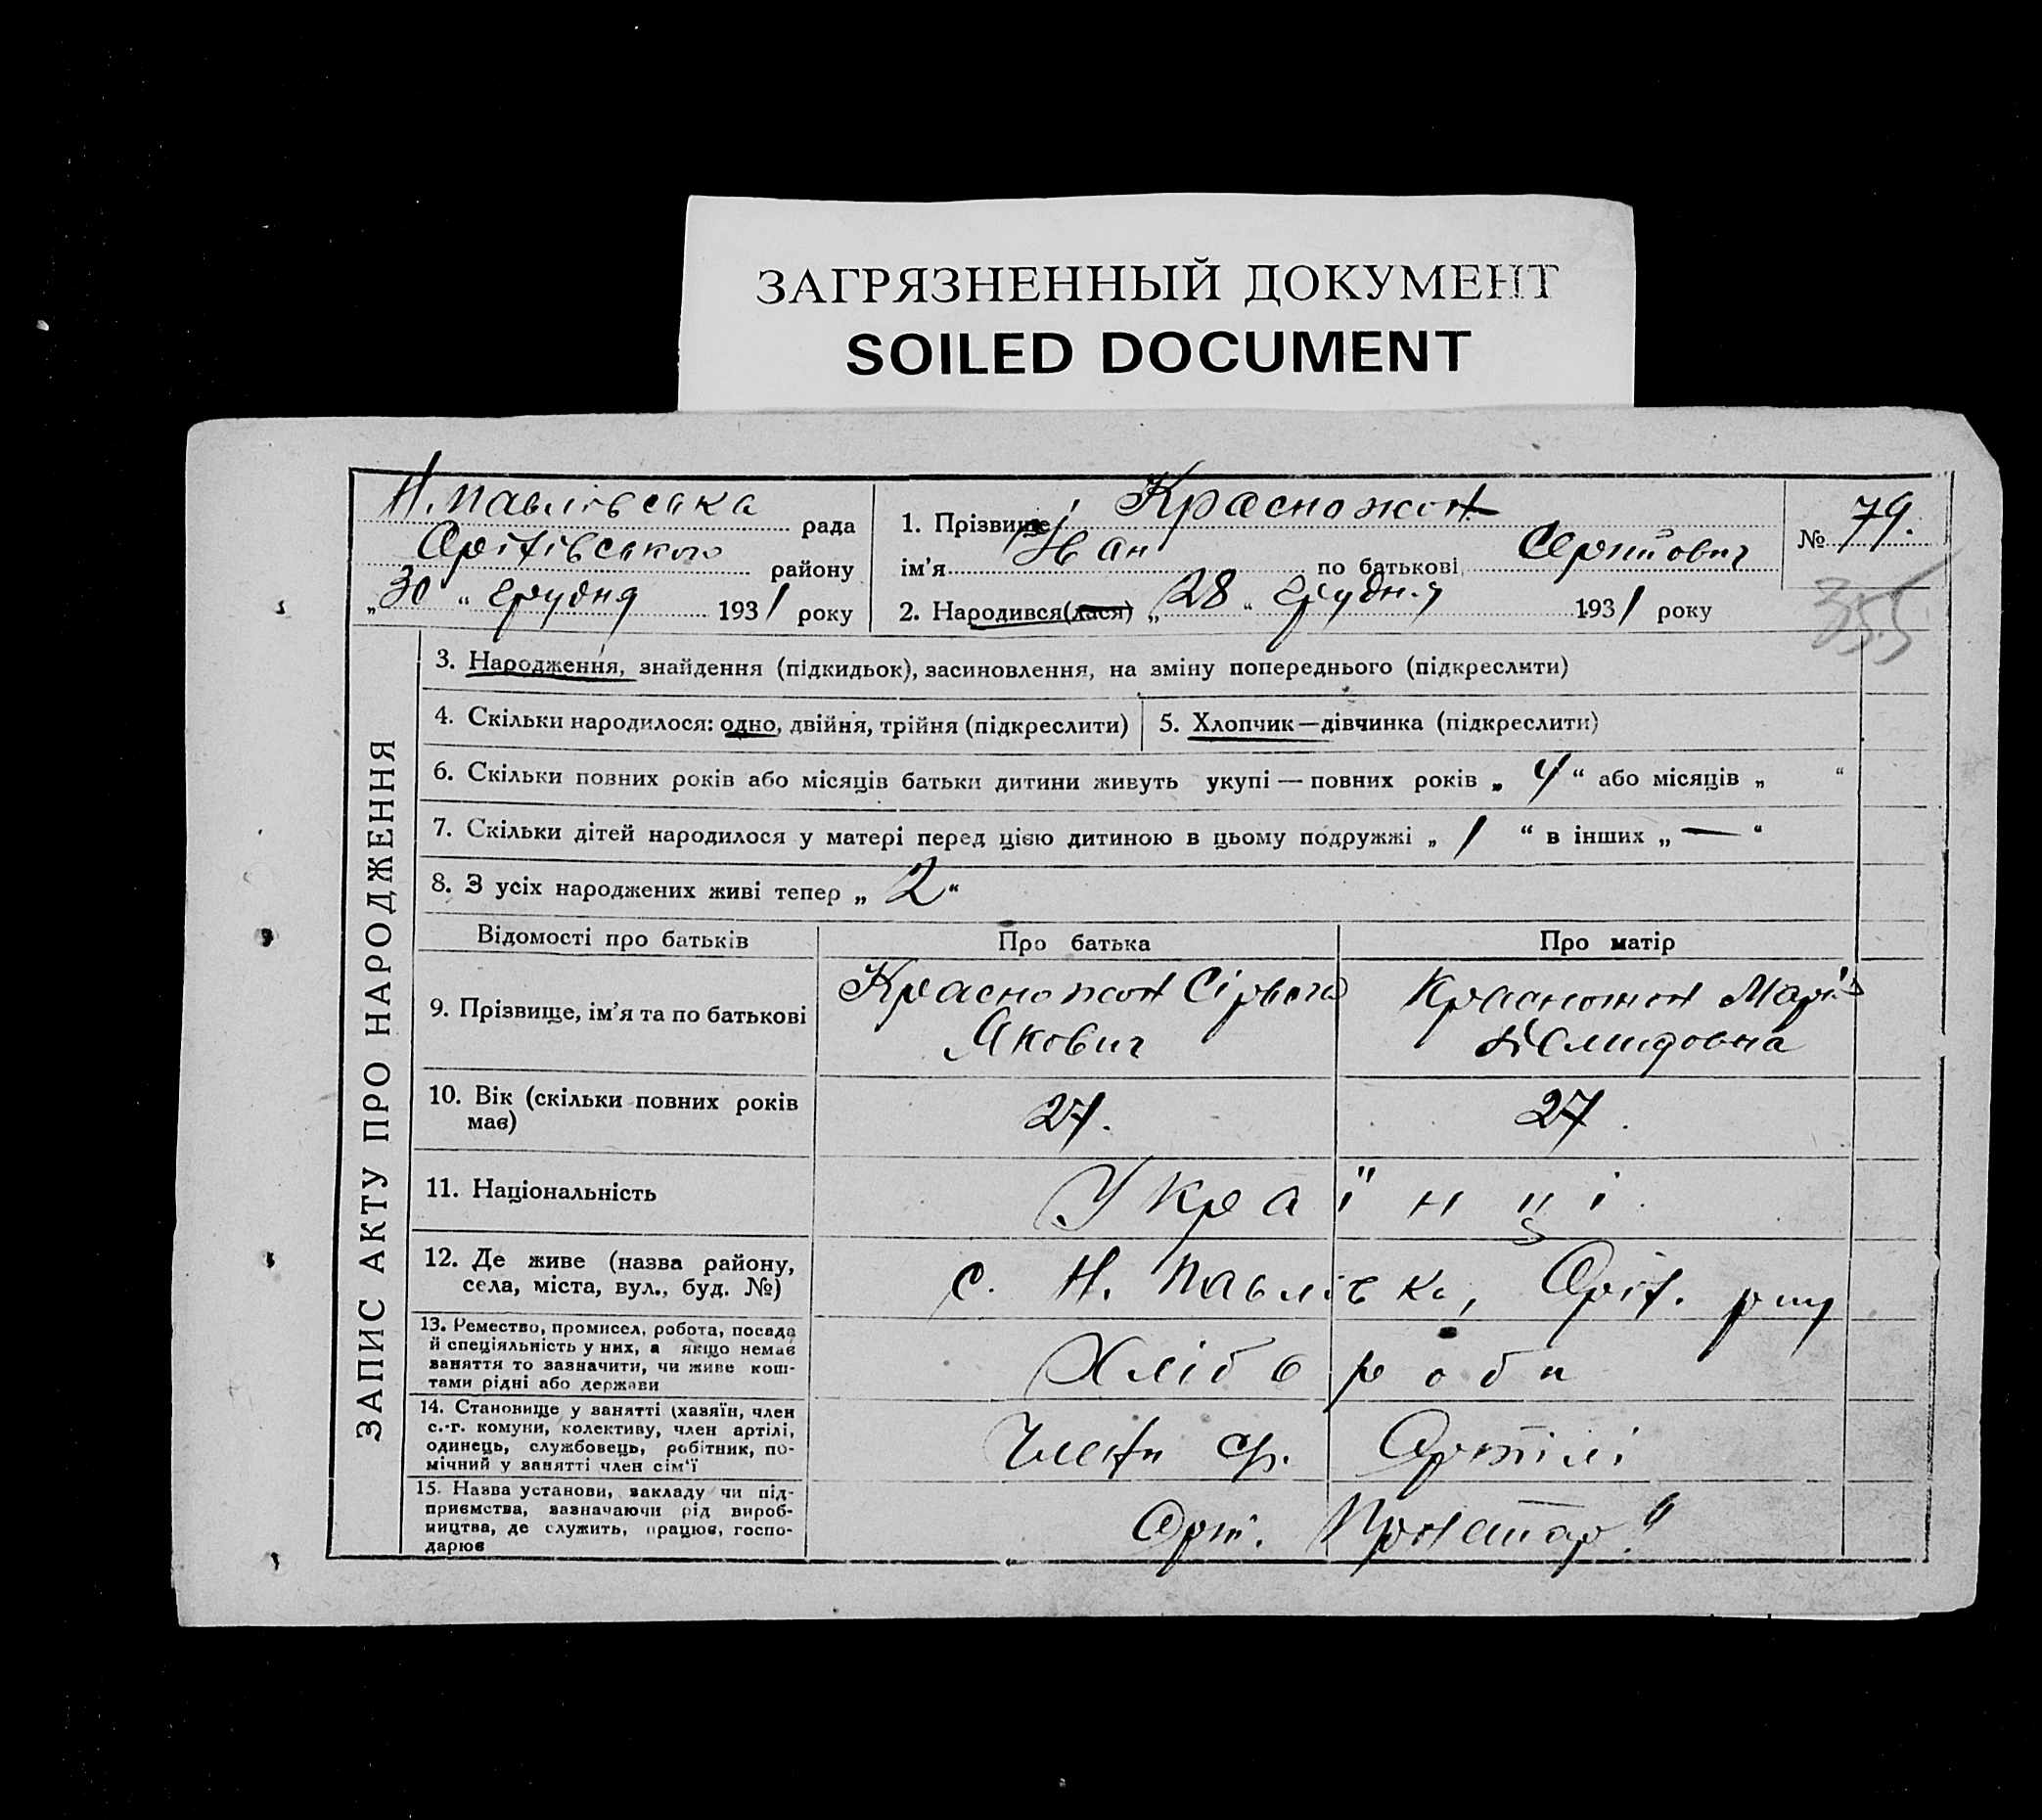 ЗАГРЯЗНЕННЫЙ ДОКУМЕНТ
SOILED DOCUMENT
Н. Павлівська рада
району
„30“ грудня 1931 року
1. Прізвище Красножон
ім’я Іван по батькові
2. Народився(лася) „28“ грудня 1931 року
№ 79.
355
ЗАПИС АКТУ ПРО НАРОДЖЕННЯ
3. Народження, знайдення (підкидьок), засиновлення, на зміну попереднього (підкреслити)
4. Скільки народилося: одно, двійня, трійня (підкреслити)
5. Хлопчик—дівчинка (підкреслити)
6. Скільки повних років або місяців батьки дитини живуть укупі — повних років „ 4 “ або місяців „ “
7. Скільки дітей народилося у матері перед цією дитиною в цьому подружжі „ 1 “ в інших „ — “
8. З усіх народжених живі тепер „ 2 “
Відомості про батьків Про батька Про матір
9. Прізвище, ім’я та по батькові
Красножон
Якович
Красножон Марія
Демидовна
10. Вік (скільки повних років
має)
27. 27.
11. Національність Українці
12. Де живе (назва району,
села, міста, вул., буд. №)
с. Н. Павлівка,
13. Ремество, промисел, робота, посада
й спеціяльність у них, а якщо немає
заняття то зазначити, чи живе кош-
тами рідні або держави
Хлібороби
14. Становище у занятті (хазяїн, член
с.-г. комуни, колективу, член артілі,
одинець, службовець, робітник, по-
мічний у занятті член сім’ї
Члени Артілі
15. Назва установи, закладу чи під-
приємства, зазначаючи рід вироб-
ництва, де служить, працює, госпо-
дарює
Арт.